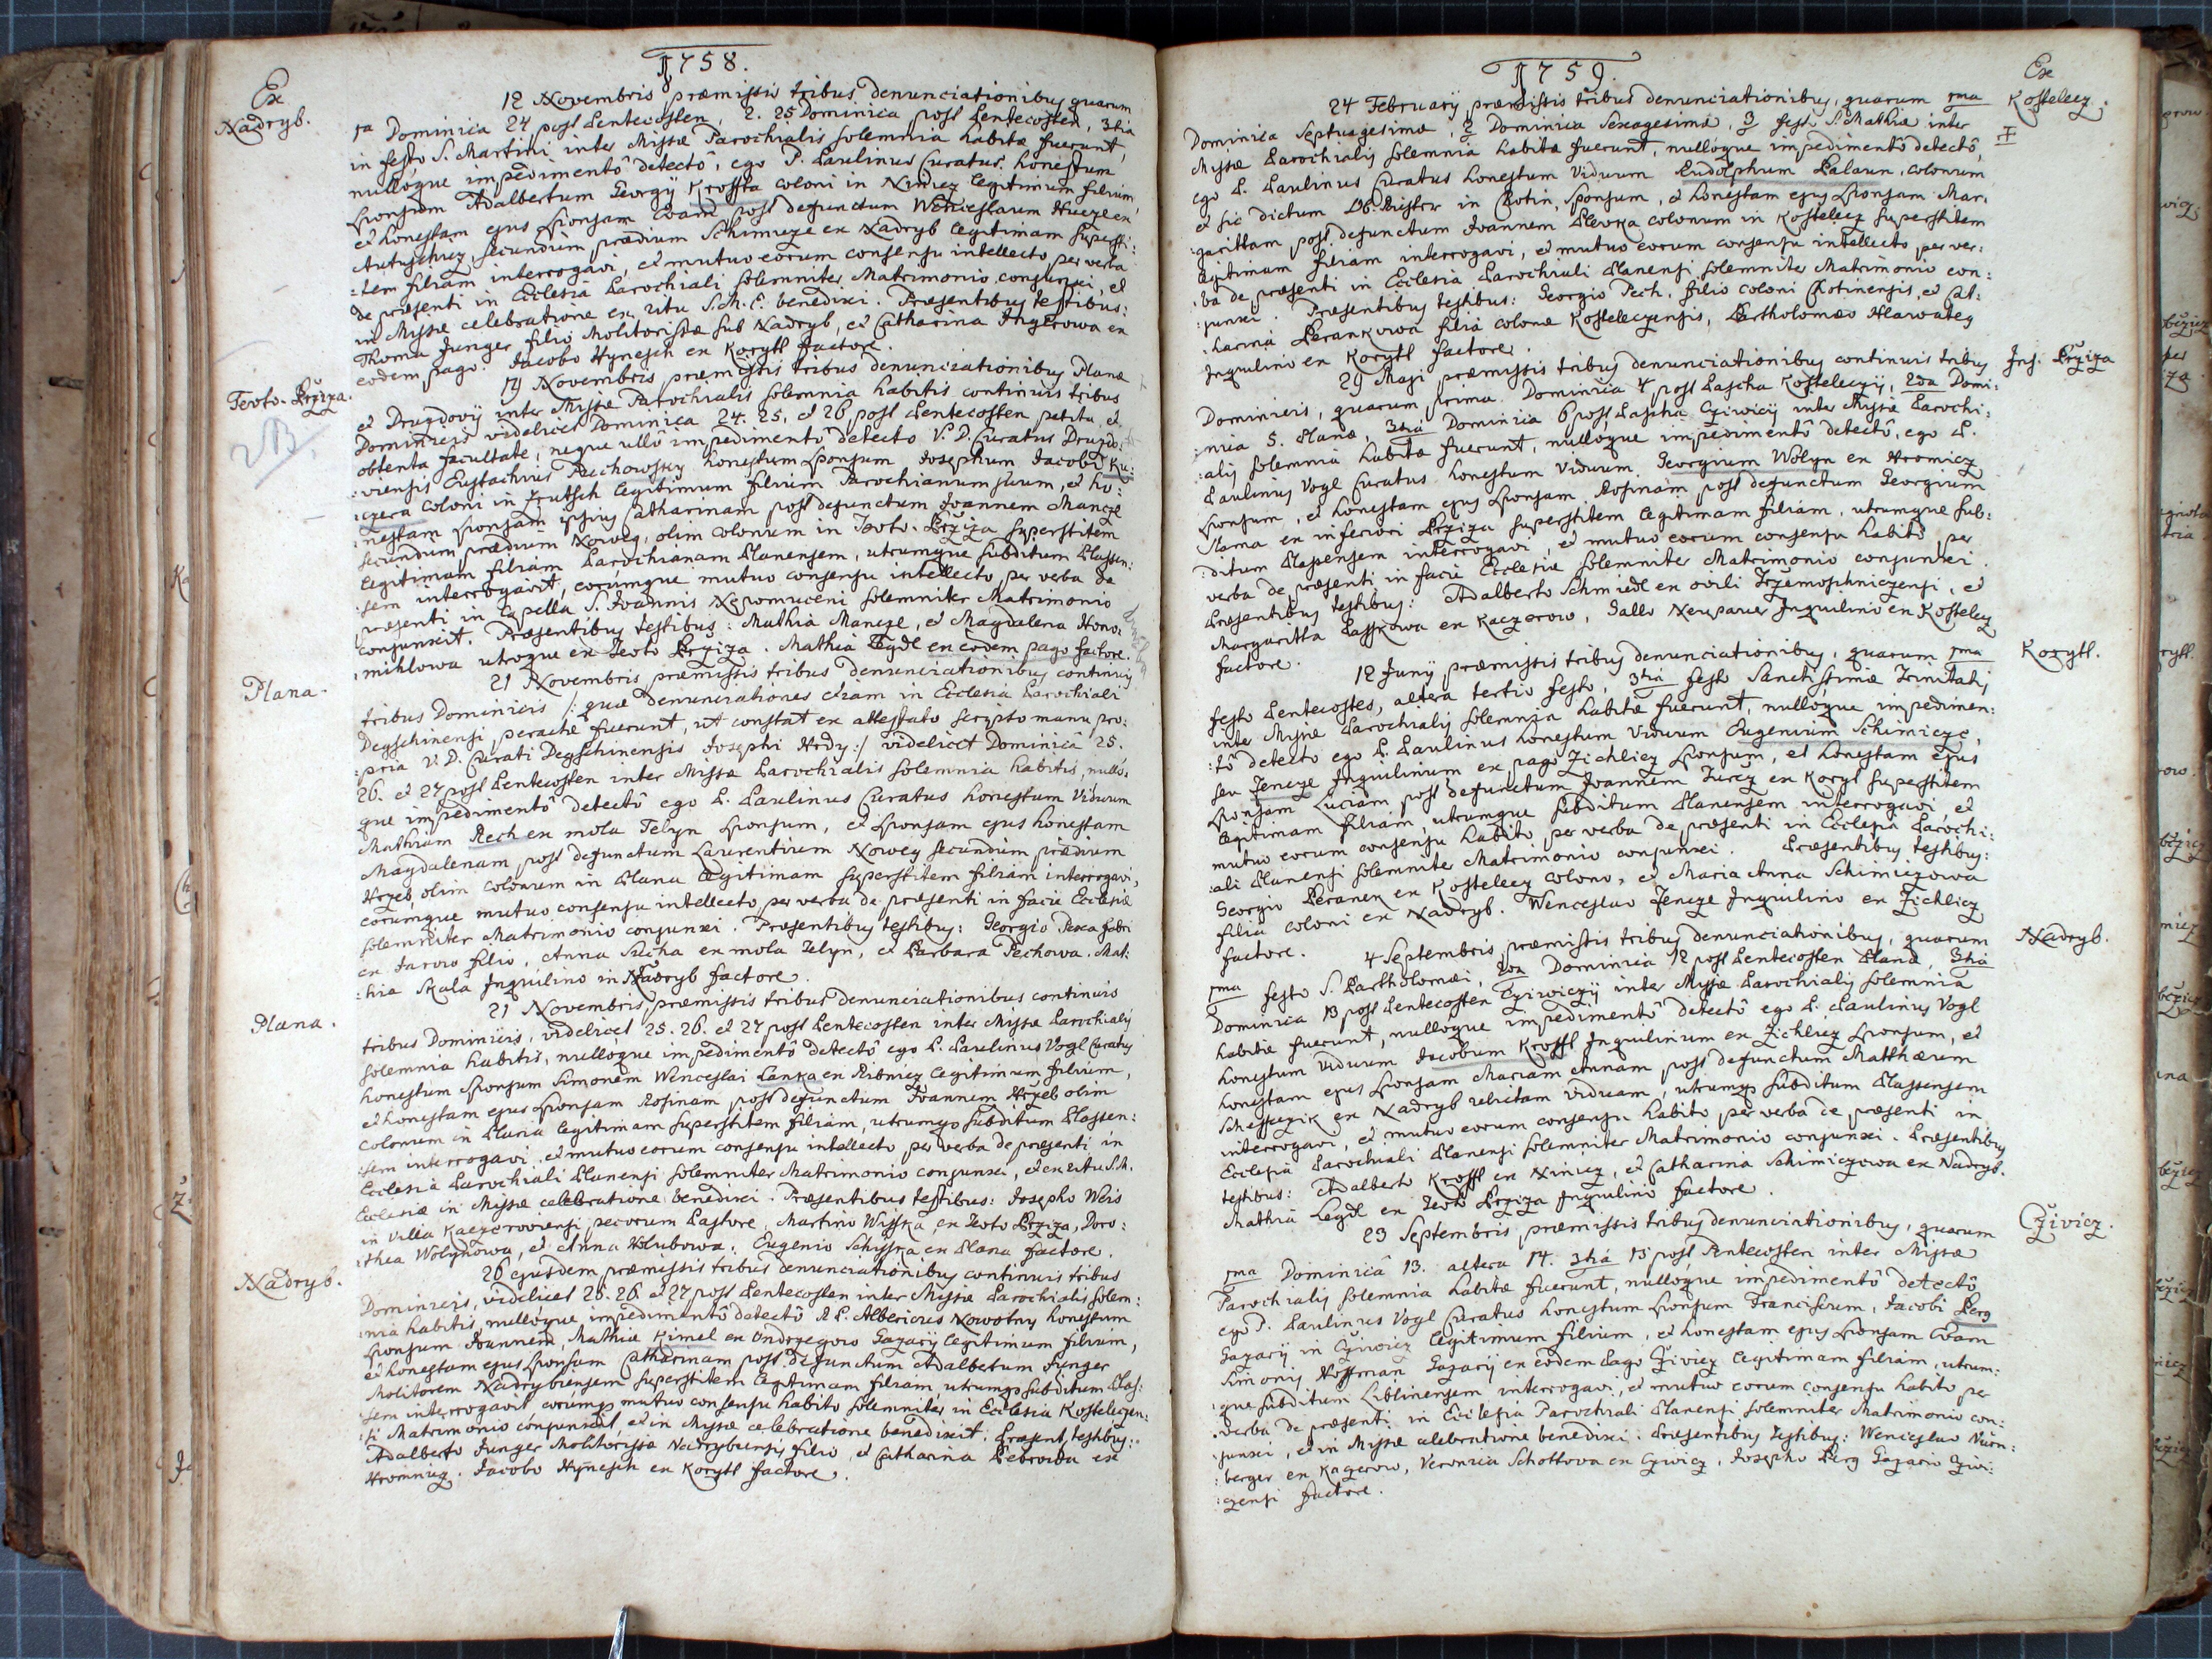 1758.
Ex
Nadryb.
12 Novembris præmissis tribus denunciationibus quarum
1a Dominica 24 post Pentecosten, 2. 25 Dominica post Pentecosten, 3tia
in festo S. Martini inter Missæ Parochialis solemnia habitæ fuerunt,
nullóque impedimentô detectô, ego P. Paulinus Curatus honestum
Sponsum Adalbertum Georgy Krofta coloni in Niniez legitimum filium,
et honestam ejus Sponsam Evam post defunctum Wenceslaum
secundum prædium Schimicze ex Nadryb legitimam supersti:
:tem filiam interrogavi, et mutuo eorum consensu intellecto, per verba
de præsenti in Ecclesia Parochiali solemniter Matrimonio conjunxi, et
in Missæ celebratione ex ritu S. M. E. benedixi. Præsentibus testibus:
Thoma Junger filio Molitorissæ sub Nadryb, et Catharina Jngrowa ex
eodem pago. Jacobo Hynesch ex Korytt factore.
Teoto-Brziza.
19 Novembris præmissis tribus denunciationibus Planæ
et Druzdovij inter Missæ Parochialis solemnia habitis continuis tribus
Dominicis videlicet Dominica 24. 25. et 26 post Pentecosten petita, et
obtenta facultate, neque ullô impedimentô detecto V. D. Curatus Druzdo:
:viensis Eustachius Puchowsky honestum Sponsum Josephum Jacobi Ku:
:czera coloni in Zrutsch legitimum filium Parochianum suum, et ho:
nestam Sponsam ipsius Catharinam post defunctum Joannem Mancze
secundum prædium Noweg, olim colonum in Teoto-Brziza superstitem
legitimam filiam Parochianam Planensem, utrumque subditum Plassen:
:sem interrogavit, eorumque mutuo consensu intellecto, per verba de
præsenti in Capella S. Joannis Nepomuceni solemniter Matrimonio
conjunxit. Præsentibus testibus: Mathia Mancze, et Magdalena Hono:
:mihlowa utroque ex Teoto Brziza. Mathia Legdl ex eodem pago factore.
Plana.
21 Novembris præmissis tribus denunciationibus continuis
tribus Dominicis /: quæ denunciationes etiam in Ecclesia Parochiali
Degschinensi peractæ fuerunt, ut constat ex attestato scripto manu pro:
:pria V. D. Curati Degschinensis Josephi Hrdy :/ videlicet Dominicâ 25.
26. et 27 post Pentecosten inter Missæ Parochialis solemnia habitis, nullô:
que impedimentô detectô ego P. Paulinus Curatus honestum Viduum
Mathiam Pech ex mola Telyn Sponsum, et Sponsam ejus honestam
Magdalenam post defunctum Laurentium Nowey secundum prædium
Hrzeb, olim colonum in Plana legitimam superstitem filiam interrogavi,
eorumque mutuo consensu intellecto, per verba de præsenti in facie Ecclesiæ
solemniter Matrimonio conjunxi. Præsentibus testibus: Georgio Pexa fabri
ex Jarow filio, Anna Sucha ex mola Telyn, et Barbara Pechowa. Mat:
:hia Skala Jnquilino in Nadryb factore.
Plana.
21 Novembris præmissis tribus denunciationibus continuis
tribus Dominicis, videlicet 25. 26. et 27 post Pentecosten inter Missæ Parochialis
solemnia habitis, nullôque impedimentô detectô ego P. Paulinus Vogl Curatus
honestum Sponsum Simonem Wenceslai Lanka ex Ribnicz legitimum filium,
et honestam ejus Sponsam Rosinam post defunctum Joannem Hrzeb olim
colonum in Plana legitimam superstitem filiam, utrumqs subditum Plassen:
:sem interrogavi, et mutuo eorum consensu intellecto per verba de præsenti in
Ecclesia Parochiali Planensi solemniter Matrimonio conjunxi, et ex ritu S. M.
Ecclesiæ in Missæ celebratione benedixi. Præsentibus testibus: Josepho Weis
in villa Kaczerowiensi pecorum Pastore, Martino Wisska ex Teoto Brziza, Doro:
:thea Wolynowa, et Anna Holubowa. Eugenio Schisska ex Plana factore.
Nadryb.
26 ejusdem præmissis tribus denunciationibus continuis tribus
Dominicis, videlicet 25. 26. et 27 post Pentecosten inter Missæ Parochialis solem:
:nia habitis, nullóque impedimentô detectô R. P. Albericus Nowotny honestum
Sponsum Joannem, Mathiæ Kimel ex Ondrzegow Gazarij legitimum filium,
et honestam ejus Sponsam Catharinam post defunctum Adalbertum Junger
Molitorem Nadrybensem superstitem legitimam filiam, utrumqs subditum Plas:
:sem interrogavit eorumqs mutuo consensu habito solemniter in Ecclesia Kosteleczen:
:si Matrimonio conjunxit, et in Missæ celebratione benedixit. Præsent, testibus:
Adalberto Junger Molitorissæ Nadrybensis filio, et Catharina Bebrowa ex
Hromnicz. Jacobo Hynesch ex Korytt factore.
1759.
Ex
Kosteletz.
24 February præmissis tribus denunciationibus, quarum 1ma
Dominica Septuagesimæ, 2 Dominica Sexagesimæ, 3 festo S. Mathiæ inter
Missæ Parochialis solemnia habitæ fuerunt, nullóque impedimentô detectô,
ego P. Paulinus Curatus honestum Viduum Rudolphum Palaun, colonum
et sic dictum Ob-Rister in Chotin, Sponsum, et honestam ejus Sponsam Mar:
:garittam post defunctum Joannem Plevka colonum in Kostelecz superstitem
legitimam filiam interrogavi, et mutuo eorum consensu intellecto, per ver:
:ba de præsenti in Ecclesia Parochiali Planensi solemniter Matrimonio con:
:junxi. Præsentibus testibus: Georgio Pech, filio coloni Chotinensis, et Cat:
:harina Berankowa filia coloni Kosteleczensis, Bartholomæo Hlawateg
Jnquilino ex Korytt factore.
Inf. Brziza
29 Maji præmissis tribus denunciationibus continuis tribus
Dominicis, quarum prima Dominica 4 post Pascha Kosteleczij, 2da Domi:
:nica 5. Planæ, 3tia Dominica 6 post Pascha Cziwicij inter Missæ Parochi:
:alis solemnia habitæ fuerunt, nullóque impedimentô detectô, ego P.
Paulinus Vogl Curatus honestum Viduum Georgium Wolyn ex Hromicz
Sponsum, et honestam ejus Sponsam Rosinam post defunctum Georgium
Slama ex inferiori Brziza superstitem legitimam filiam, utrumque sub:
:ditum Plassensem interrogavi, et mutuo eorum consensu habito, per
verba de præsenti in facie Ecclesiæ solemniter Matrimonio conjunxi.
Præsentibus testibus: Adalberto Schmiedl ex ovili Trzemoschniczensi, et
Margaritta Lasskowa ex Kaczerow, Gallo Neupauer Jnquilino ex Kosteletz
factore.
Korytt.
12 Juny præmissis tribus denunciationibus, quarum 1ma
festo Pentecostes, altera tertio festo, 3tia festo Sanctissimæ Trinitatis
inter Missæ Parochialis solemnia habitæ fuerunt, nullóque impedimen:
:tô detecto ego P. Paulinus honestum Viduum Eugenium Schimicze,
seu Jencze Jnquilinum ex pago Zichlicz Sponsum, et honestam ejus
Sponsam Luciam post defunctum Joannem Turcz ex Koryt superstitem
legitimam filiam, utrumque subditum Planensem interrogavi, et
mutuo eorum consensu habito, per verba de præsenti in Ecclesia Parochi:
:ali Planensi solemniter Matrimonio conjunxi. Præsentibus testibus:
Georgio Beranek ex Kostelecz colono, et Maria Anna Schimiczowa
filia coloni ex Nadryb. Wenceslao Jencze Jnquilino ex Zichlicz
factore.
Nadryb.
4 Septembris præmissis tribus denunciationibus, quarum
1ma festo S. Bartholomæi, 2da Dominica 12 post Pentecosten Planæ, 3tia
Dominica 13 post Pentecosten Cziwiczij inter Missæ Parochialis solemnia
habitæ fuerunt, nullóque impedimentô detectô ego P. Paulinus Vogl
honestum Viduum Jacobum Krofft Jnquilinum ex Zichlicz Sponsum, et
honestam ejus Sponsam Mariam Annam post defunctum Matthæum
Schestezik ex Nadryb relictam viduam, utrumqs subditum Plassensem
interrogavi, et mutuo eorum consensu habito, per verba de præsenti in
Ecclesia Parochiali Planensi solemniter Matrimonio conjunxi. Præsentibus
testibus: Adalberto Krofft ex Niniez, et Catharina Schimiczowa ex Nadryb.
Mathia Legdl ex Teoto Brziza Jnquilino factore.
Cziwicz.
23 Septembris præmissis tribus denunciationibus, quarum
1ma Dominicâ 13. altera 14. 3tia 15 post Pentecosten inter Missæ
Parochialis solemnia habitæ fuerunt, nullóque impedimentô detectô
ego P. Paulinus Vogl Curatus honestum Sponsum Franciscum, Jacobi Berg
Gazarij in Cziwicz legitimum filium, et honestam ejus Sponsam Evam
Simonis Hoffman Gazarij ex eodem Pago Cziwicz legitimam filiam, utrum:
:que subditum Liblinensem interrogavi, et mutuo eorum consensu habito, per
verba de præsenti in Ecclesia Parochiali Planensi solemniter Matrimonio con:
:junxi, et in Missæ celebratione benedixi. Præsentibus testibus: Wenceslao Nürn:
:berger ex Kaczerow, Veronica Schottowa ex Cziwicz, Josepho Berg Gazario Cziwi:
:czensi factore.